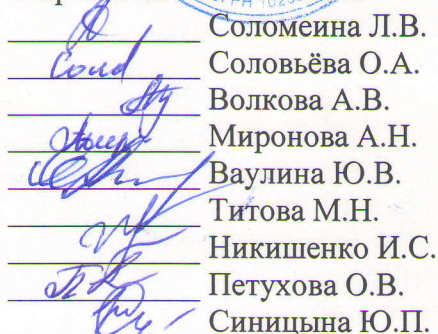 Соломеина Л.В.
Соловьёва О.А.
Волкова А.В.
Миронова А.Н.
Ваулина Ю.В.
Титова М.Н.
Никишенко И.С.
Петухова О.В.
Синицына Ю.П.